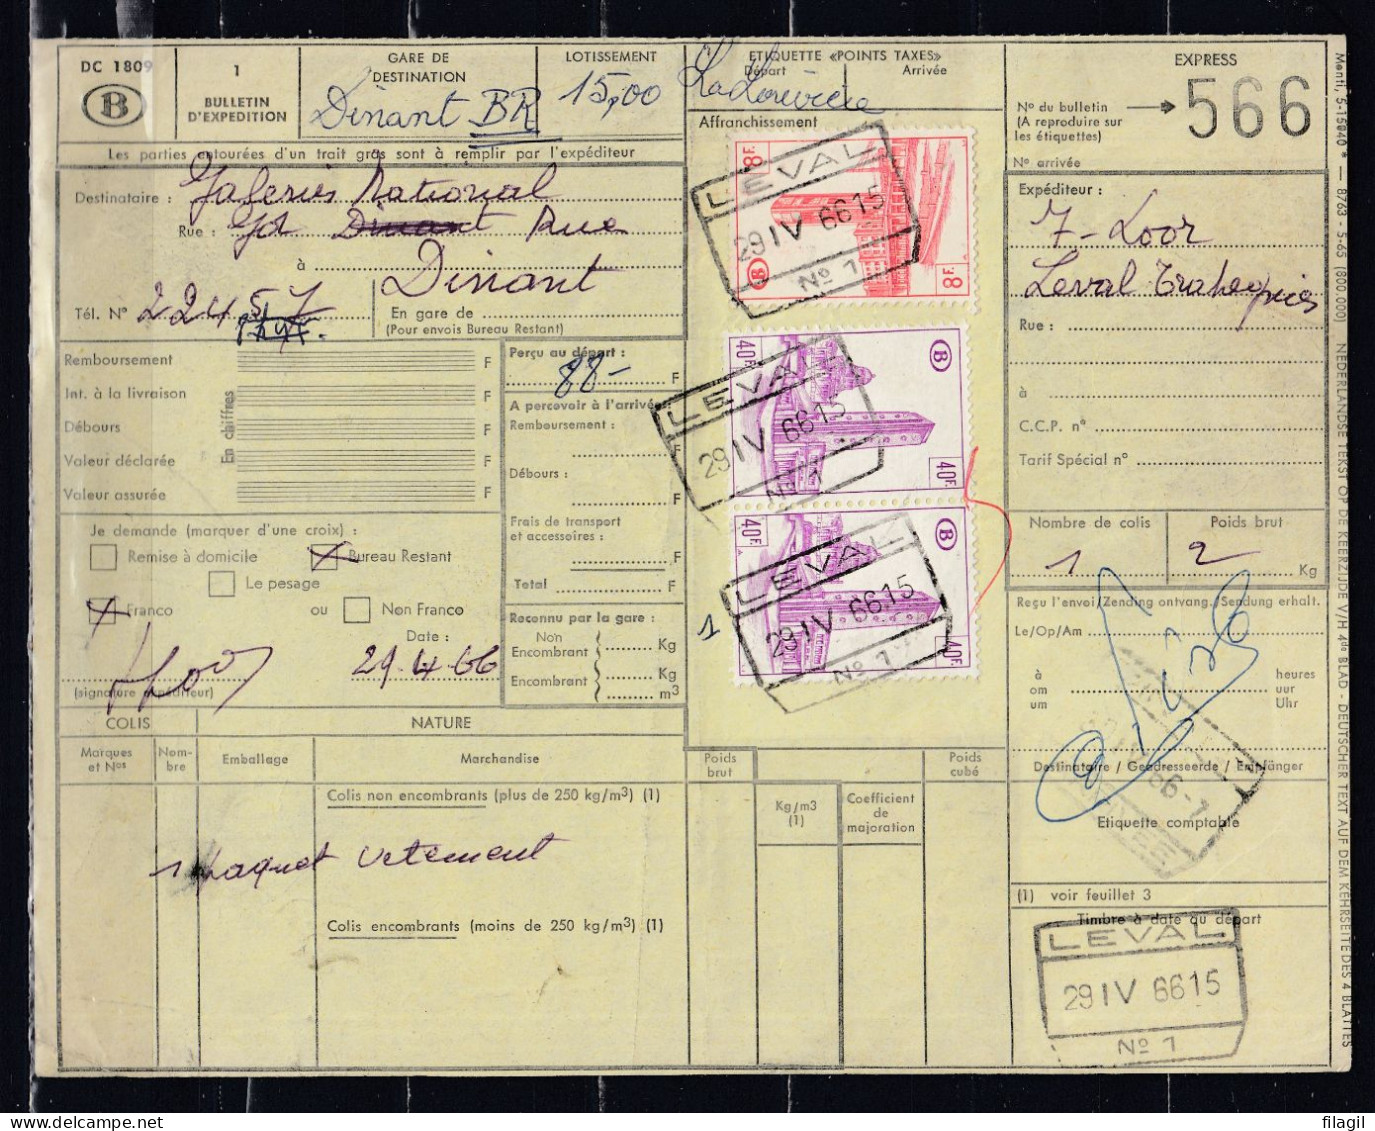 DC 1809
B
1
BULLETIN
D'EXPEDITION
GARE DE
DESTINATION
Dinant BR
LOTISSEMENT
15,00
ETIQUETTE «POINTS TAXES»
Départ
Arrivée
Affranchissement
EXPRESS
Nº du bulletin
(A reproduire sur
les étiquettes)
566
Nº arrivée
Les parties entourées d'un trait gras sont à remplir par l'expéditeur
Destinataire :
Galeries National
Rue :
Gd Dinant Rue
à
Dinant
Tél. Nº
224 57
En gare de
(Pour envois Bureau Restant)
Expéditeur :
Loor
Leval Trahegnies
Rue :
à
C.C.P. nº
Tarif Spécial nº
Nombre de colis
Poids brut
1
2
Kg
8F.
8F.
B
LEVAL
29 IV 66 15
Nº 1
40F.
40F.
B
LEVAL
29 IV 66 15
Nº 1
40F.
40F.
B
LEVAL
29 IV 66 15
Nº 1
1
Remboursement
F
Int. à la livraison
F
Débours
F
Valeur déclarée
F
Valeur assurée
F
En chiffres
Perçu au départ :
88-
F
A percevoir à l'arrivée :
Remboursement :
F
Débours :
F
Frais de transport
et accessoires :
F
Total
F
Je demande (marquer d'une croix) :
Remise à domicile
Bureau Restant
Le pesage
Franco
ou
Non Franco
Date :
29.4.66
(signature expéditeur)
Reconnu par la gare :
Non
Encombrant
Kg
Encombrant
Kg
m3
Reçu l'envoi/Zending ontvang./Sendung erhalt.
Le/Op/Am
à
om
um
heures
uur
Uhr
Destinataire / Geadresseerde / Empfänger
Etiquette comptable
COLIS
NATURE
Marques
et Nos
Nom-
bre
Emballage
Marchandise
Poids
brut
Poids
cubé
Colis non encombrants (plus de 250 kg/m3) (1)
Kg/m3
(1)
Coefficient
de
majoration
1 paquet vetement
Colis encombrants (moins de 250 kg/m3) (1)
(1) voir feuillet 3
Timbre à date au départ
LEVAL
29 IV 66 15
Nº 1
NEDERLANDSE TEKST OP DE KEERZIJDE V/H 4de BLAD - DEUTSCHER TEXT AUF DEM KEHRSEITE DES 4 BLATTES
filagil